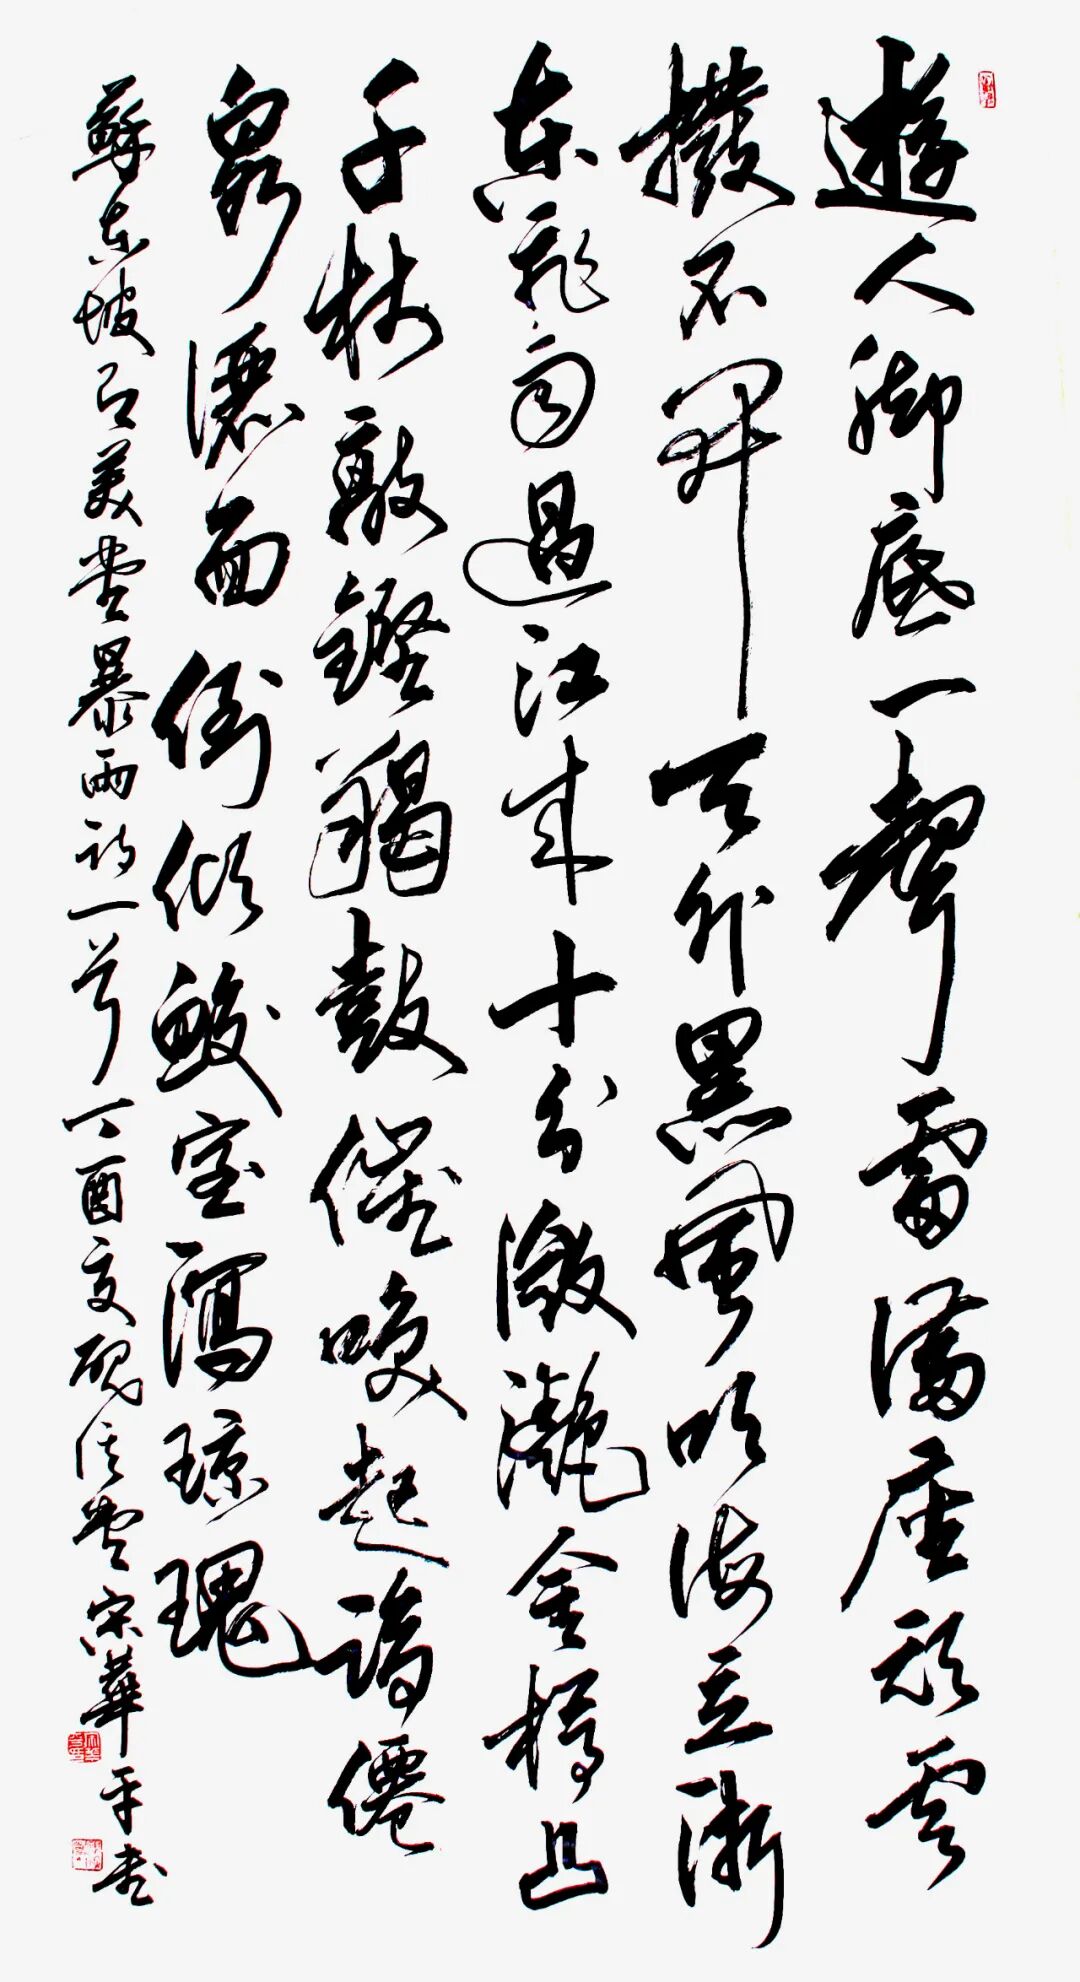 遊人脚底一聲雷滿座頑雲
撥不開天外黑風吹海立浙
東飛雨過江来十分瀲灔金樽凸
千杖敲鏗羯鼓催唤起謫僊
泉灑面倒傾鮫室瀉琼瑰
蘇東坡有美堂暴雨詩一首丁酉夏硯堂宋華平書